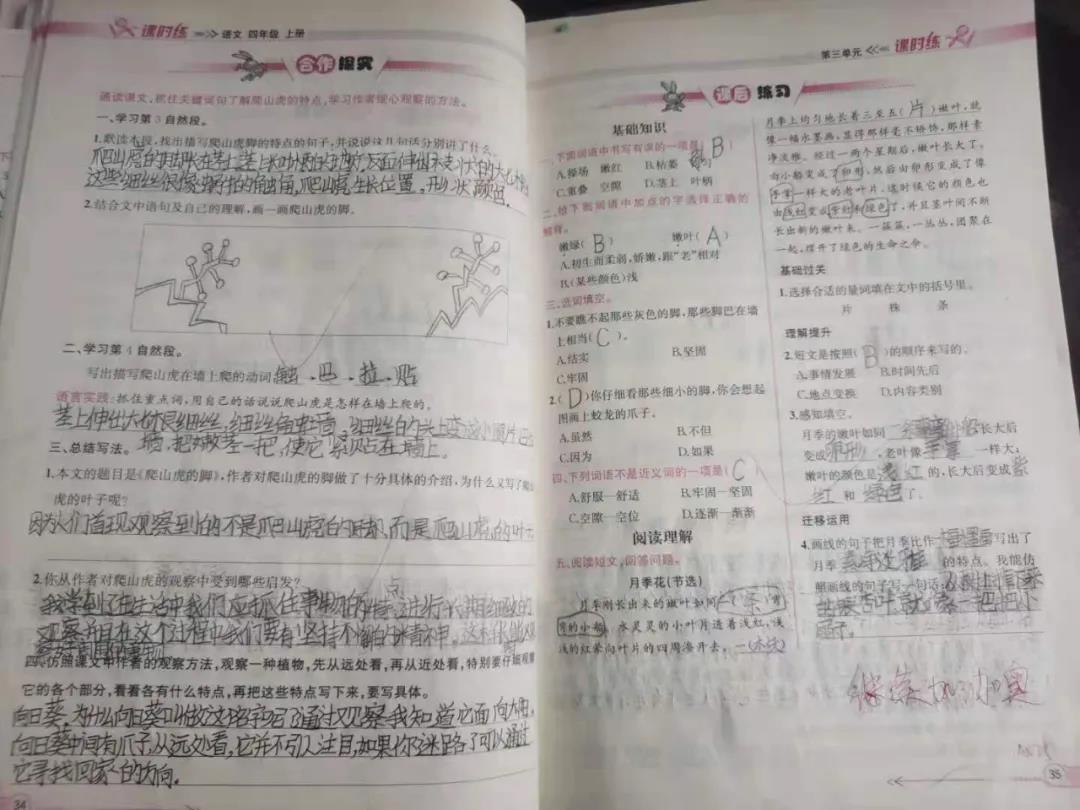 课时练 语文 四年级 上册
合作探究
诵读课文,抓住关键词句了解爬山虎的特点,学习作者细心观察的方法。
一、学习第3自然段。
1.默读本段,找出描写爬山虎脚的特点的句子,并说说这几句话分别讲了什么。
爬山虎的脚长在茎上茎上
这些细丝很像蜗牛的触角,爬山虎生长位置、形状、颜色.
2.结合文中语句及自己的理解,画一画爬山虎的脚。
二、学习第4自然段。
写出描写爬山虎在墙上爬的动词 触、巴、拉、贴
语言实践:抓住重点词,用自己的话说说爬山虎是怎样在墙上爬的。
茎上伸出 细丝,细丝
墙,把嫩茎一拉,使它紧贴在墙上。
三、总结写法。
1.本文的题目是《爬山虎的脚》,作者对爬山虎的脚做了十分具体的介绍,为什么又写了爬山
虎的叶子呢?
因为人们首先观察到的不是爬山虎的脚,而是爬山虎的叶子
2.你从作者对爬山虎的观察中受到哪些启发?
我学到了在生活中我们应抓住事物的特点,进行长期细致的
观察并且在这个过程中我们要有坚持不懈的精神,这样
四、仿照课文中作者的观察方法,观察一种植物,先从远处看,再从近处看,特别要仔细观察
它的各个部分,看看各有什么特点,再把这些特点写下来,要写具体。
向日葵,为什么向日葵叫做这名字呢?通过观察我知道它面向太阳,
向日葵中间有爪子,从远处看,它并不引人注目,如果你迷路了可以通过
它寻找回家的方向.
34
第三单元 课时练
课后练习
基础知识
一、下面词语中书写有误的一项是( B )
A.操场 嫩红 B.枯萎
C.重叠 空隙 D.茎上 叶柄
二、给下面词语中加点的字选择正确的
解释。
嫩绿( B ) 嫩叶( A )
A.初生而柔弱,娇嫩,跟“老”相对
B.(某些颜色)浅
三、选词填空。
1.不要瞧不起那些灰色的脚,那些脚巴在墙
上相当( C )。
A.结实 B.坚固
C.牢固
2.( D )你仔细看那些细小的脚,你会想起
图画上蛟龙的爪子。
A.虽然 B.不但
C.因为 D.如果
四、下列词语不是近义词的一项是( C )
A.舒服—舒适 B.牢固—坚固
C.空隙—空位 D.逐渐—渐渐
阅读理解
五、阅读短文,回答问题。
月季花(节选)
月季刚长出来的嫩叶如同一( 条 )弯
弯的小船。水灵灵的小叶片透着浅红,浅
浅的红晕向叶片的四周漫开去。一(株)
月季上均匀地长着三至五( 片 )嫩叶,就
像一幅水墨画,显得那样毫不矫饰,那样素
净淡雅。经过一两个星期后,嫩叶长大了。
由小船变成了卵形,然后由卵形变成了像
手掌一样大的老叶片。这时候它的颜色也
由浅红变成紫红和绿色了,并且茎叶间不断
长出新的嫩叶来。一簇簇,一丛丛,团聚在
一起,撑开了绿色的生命之伞。
基础过关
1.选择合适的量词填在文中的括号里。
片 株 条
理解提升
2.短文是按照( B )的顺序来写的。
A.事情发展 B.时间先后
C.地点变换 D.内容类别
3.感知填空。
月季的嫩叶如同 长大后
变成 卵形 ,老叶像 手掌 一样大;
嫩叶的颜色是 浅红 的,长大后变成 紫
红 和 绿色 了。
迁移运用
4.画线的句子把月季比作 水墨画 写出了
月季 素净淡雅 的特点。我能仿
照画线的句子写一句话:
子.
35